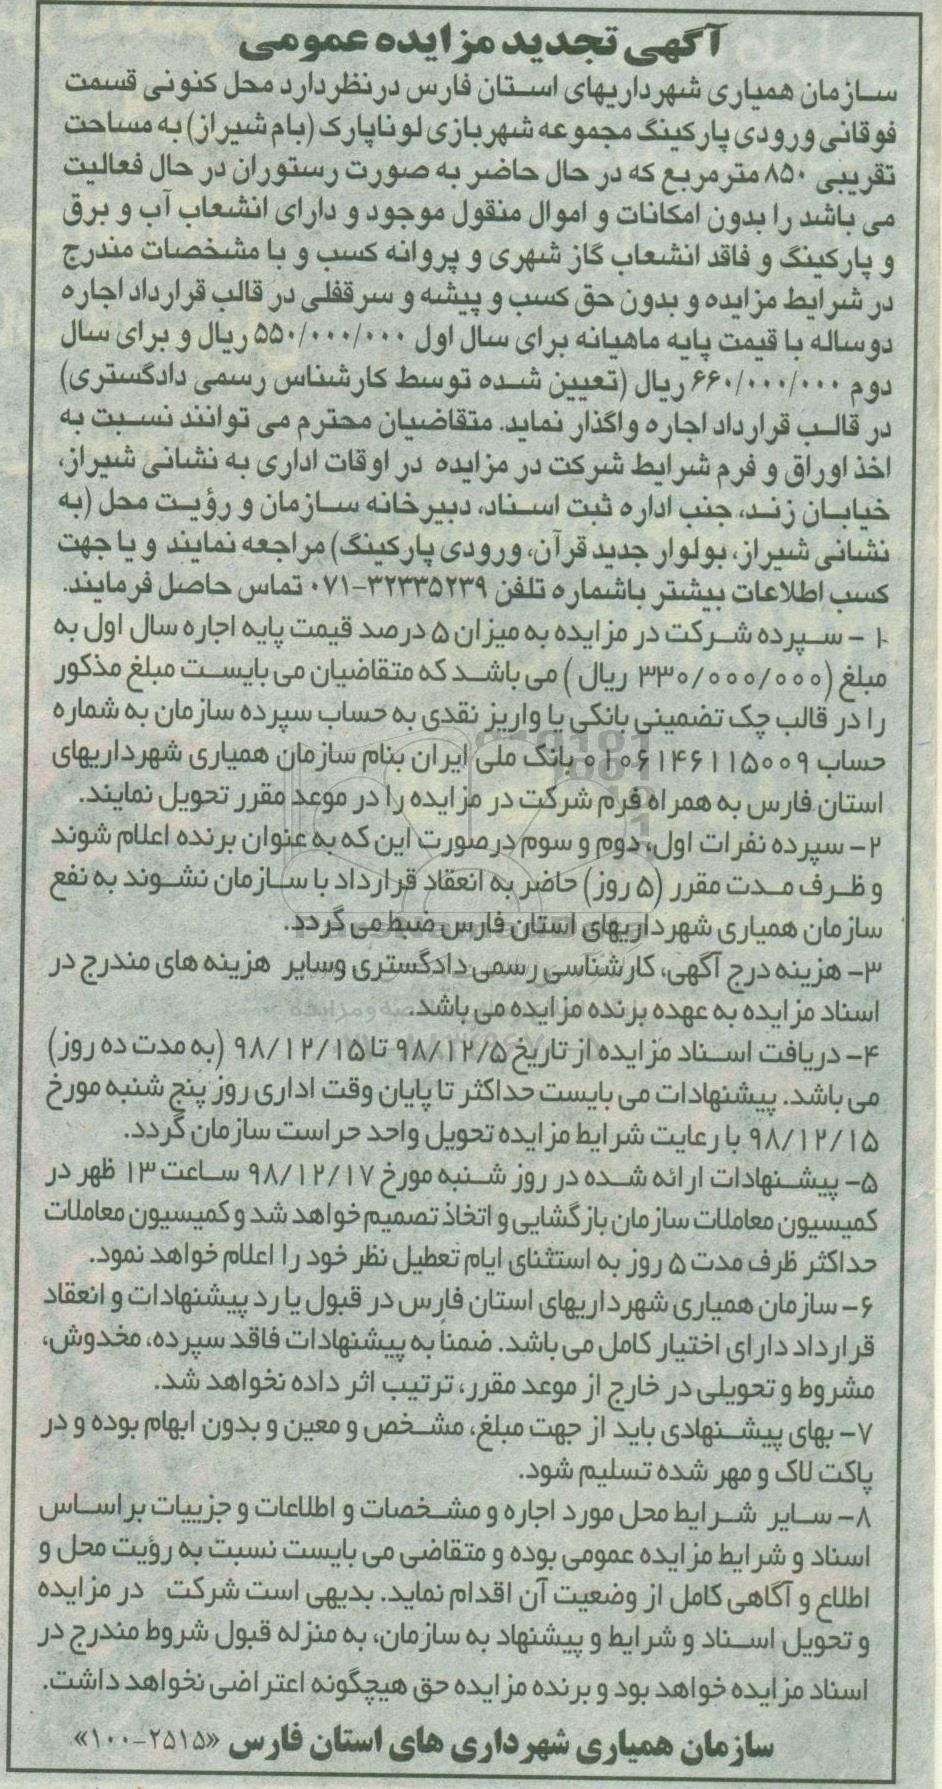 آگهی تجدید مزایده عمومی
سازمان همیاری شهرداریهای استان فارس درنظردارد محل کنونی قسمت
فوقانی ورودی پارکینگ مجموعه شهربازی لوناپارک (بام شیراز) به مساحت
تقریبی ۸۵۰ مترمربع که در حال حاضر به صورت رستوران در حال فعالیت
می باشد را بدون امکانات و اموال منقول موجود و دارای انشعاب آب و برق
و پارکینگ و فاقد انشعاب گاز شهری و پروانه کسب و با مشخصات مندرج
در شرایط مزایده و بدون حق کسب و پیشه و سرقفلی در قالب قرارداد اجاره
دوساله با قیمت پایه ماهیانه برای سال اول ۵۵۰/۰۰۰/۰۰۰ ریال و برای سال
دوم ۶۶۰/۰۰۰/۰۰۰ ریال (تعیین شده توسط کارشناس رسمی دادگستری)
در قالب قرارداد اجاره واگذار نماید. متقاضیان محترم می توانند نسبت به
اخذ اوراق و فرم شرایط شرکت در مزایده در اوقات اداری به نشانی شیراز،
خیابان زند، جنب اداره ثبت اسناد، دبیرخانه سازمان و رؤیت محل (به
نشانی شیراز، بولوار جدید قرآن، ورودی پارکینگ) مراجعه نمایند و یا جهت
کسب اطلاعات بیشتر باشماره تلفن ۳۲۳۳۵۲۳۹-۰۷۱ تماس حاصل فرمایند.
۱- سپرده شرکت در مزایده به میزان ۵ درصد قیمت پایه اجاره سال اول به
مبلغ (۳۳۰/۰۰۰/۰۰۰ ریال ) می باشد که متقاضیان می بایست مبلغ مذکور
را در قالب چک تضمینی بانکی یا واریز نقدی به حساب سپرده سازمان به شماره
حساب ۰۱۰۶۱۴۶۱۱۵۰۰۹ بانک ملی ایران بنام سازمان همیاری شهرداریهای
استان فارس به همراه فرم شرکت در مزایده را در موعد مقرر تحویل نمایند.
۲- سپرده نفرات اول، دوم و سوم درصورت این که به عنوان برنده اعلام شوند
و ظرف مدت مقرر (۵ روز) حاضر به انعقاد قرارداد با سازمان نشوند به نفع
سازمان همیاری شهرداریهای استان فارس ضبط می گردد.
۳- هزینه درج آگهی، کارشناسی رسمی دادگستری وسایر هزینه های مندرج در
اسناد مزایده به عهده برنده مزایده می باشد.
۴- دریافت اسناد مزایده از تاریخ ۹۸/۱۲/۵ تا ۹۸/۱۲/۱۵ (به مدت ده روز)
می باشد. پیشنهادات می بایست حداکثر تا پایان وقت اداری روز پنج شنبه مورخ
۹۸/۱۲/۱۵ با رعایت شرایط مزایده تحویل واحد حراست سازمان گردد.
۵- پیشنهادات ارائه شده در روز شنبه مورخ ۹۸/۱۲/۱۷ ساعت ۱۳ ظهر در
کمیسیون معاملات سازمان بازگشایی و اتخاذ تصمیم خواهد شد و کمیسیون معاملات
حداکثر ظرف مدت ۵ روز به استثنای ایام تعطیل نظر خود را اعلام خواهد نمود.
۶- سازمان همیاری شهرداریهای استان فارس در قبول یا رد پیشنهادات و انعقاد
قرارداد دارای اختیار کامل می باشد. ضمناً به پیشنهادات فاقد سپرده، مخدوش،
مشروط و تحویلی در خارج از موعد مقرر، ترتیب اثر داده نخواهد شد.
۷- بهای پیشنهادی باید از جهت مبلغ، مشخص و معین و بدون ابهام بوده و در
پاکت لاک و مهر شده تسلیم شود.
۸- سایر شرایط محل مورد اجاره و مشخصات و اطلاعات و جزییات براساس
اسناد و شرایط مزایده عمومی بوده و متقاضی می بایست نسبت به رؤیت محل و
اطلاع و آگاهی کامل از وضعیت آن اقدام نماید. بدیهی است شرکت در مزایده
و تحویل اسناد و شرایط و پیشنهاد به سازمان، به منزله قبول شروط مندرج در
اسناد مزایده خواهد بود و برنده مزایده حق هیچگونه اعتراضی نخواهد داشت.
سازمان همیاری شهرداری های استان فارس «۲۵۱۵-۱۰۰»